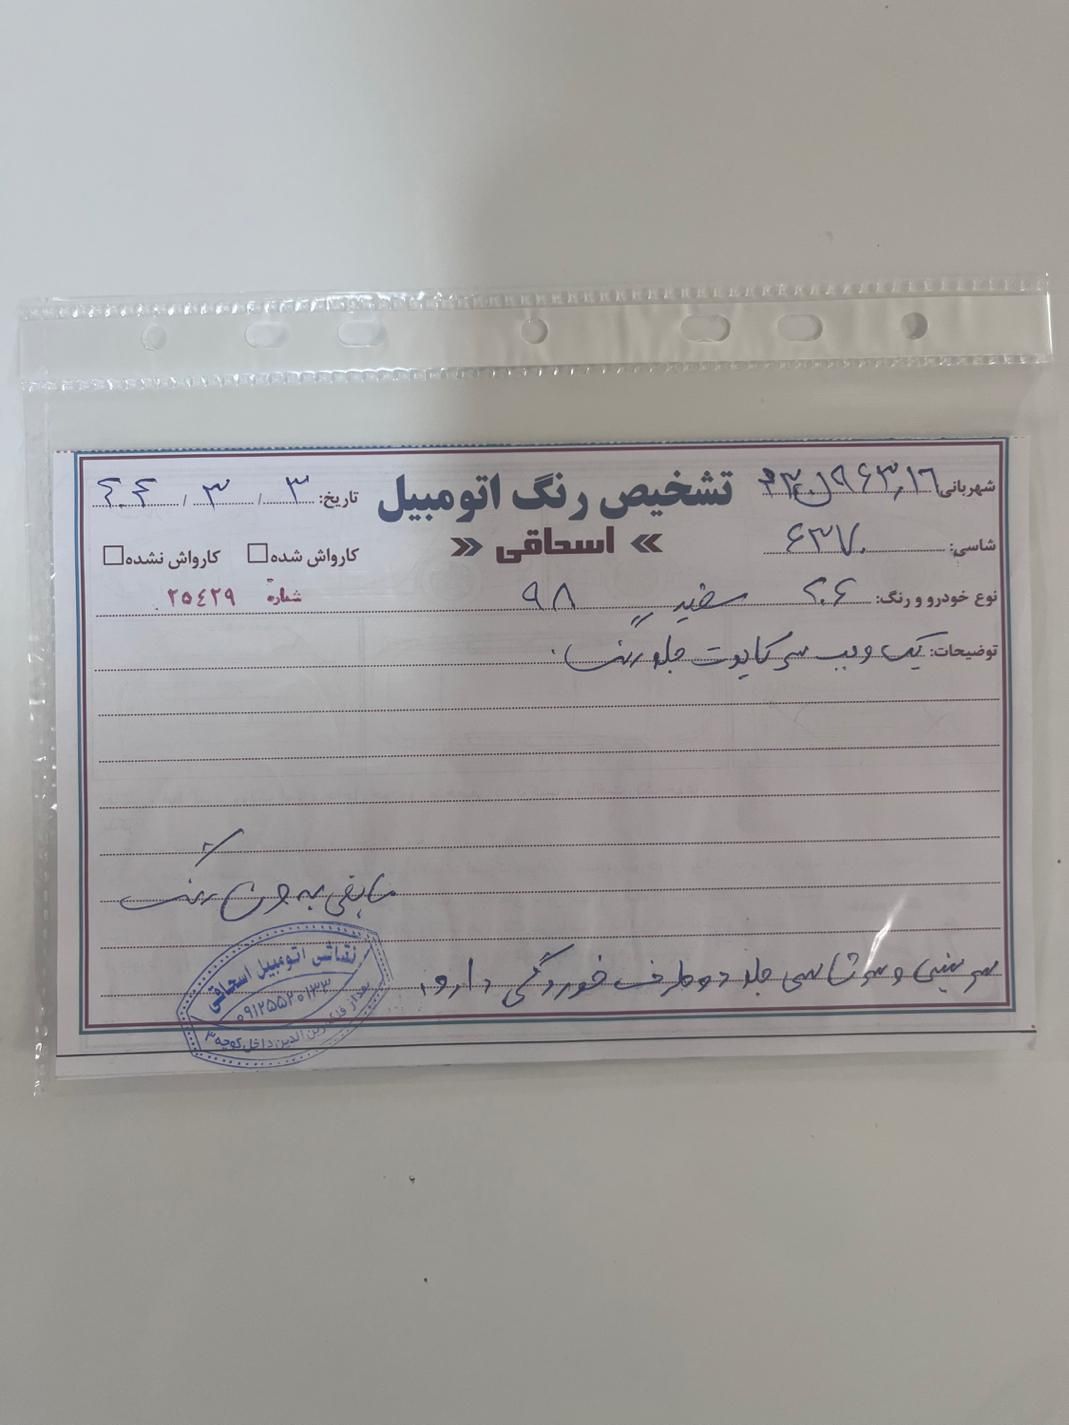 تشخیص رنگ اتومبیل
« اسحاقی »
شهربانی
تاریخ: ۳ / ۳ / ۴۰۴
شاسی: ۶۳۷۰
کارواش شده کارواش نشده
نوع خودرو و رنگ: ۲۰۶ سفید ۹۸
شماره ۲۵۴۲۹
توضیحات: یک وجب سر کاپوت جلو رنگ
مابقی بدون رنگ
سر سینی و سر شاسی جلو دو طرف خوردگی دارد
نقاشی اتومبیل اسحاقی
۰۹۱۲۵۵۲۰۱۳۳
زین الدین داخل کوچه ۳